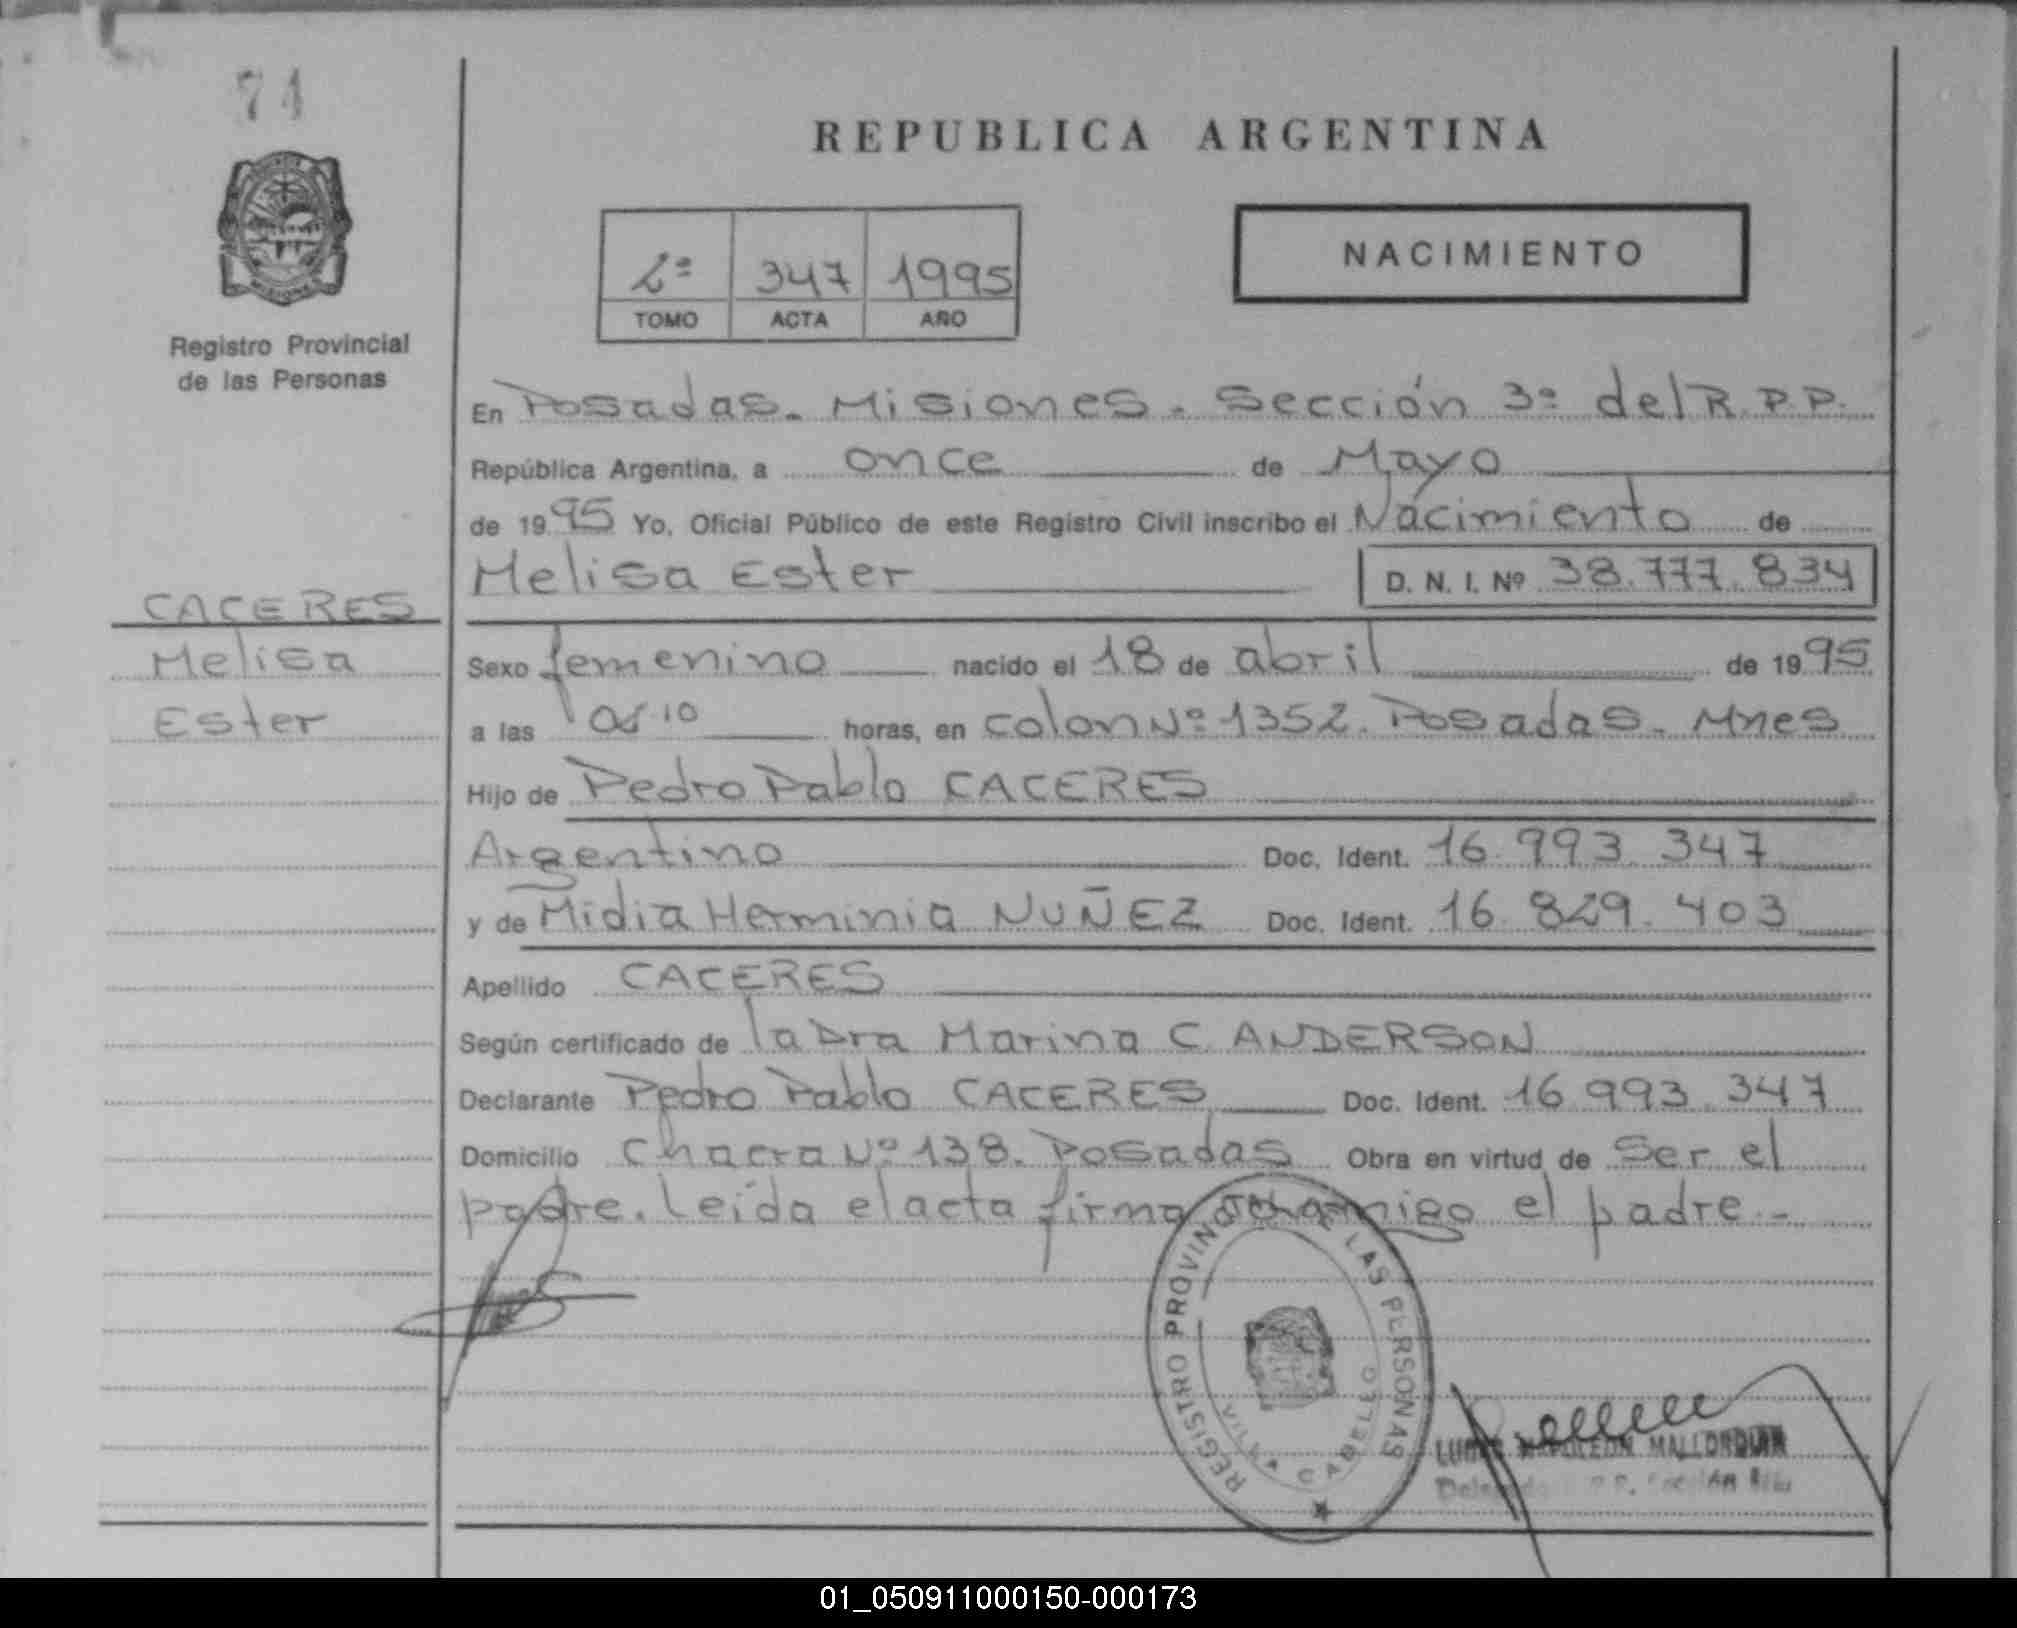 74
REPUBLICA ARGENTINA
NACIMIENTO
2º 347 1995
TOMO ACTA AÑO
Registro Provincial
de las Personas
En Posadas - Misiones. Sección 3º del R.P.P.
República Argentina, a once de Mayo
de 1995 Yo, Oficial Público de este Registro Civil inscribo el Nacimiento de
Melisa Ester D. N. I. Nº 38.777.834
CACERES
Melisa
Ester
Sexo femenino nacido el 18 de abril de 1995
a las horas, en colon Nº 1352. Posadas - Mnes
Hijo de Pedro Pablo CACERES
Argentino Doc. Ident. 16.993.347
y de Midia Herminia NUÑEZ Doc. Ident. 16.829.403
Apellido CACERES
Según certificado de la Dra Marina C. ANDERSON
Declarante Pedro Pablo CACERES Doc. Ident. 16.993.347
Domicilio Chacra Nº 138. Posadas Obra en virtud de Ser el
padre. Leída el acta firma conmigo el padre -
REGISTRO PROVINCIAL DE LAS PERSONAS
VILLA CABELLO
NAPOLEON MALLORQUIN
01_050911000150-000173